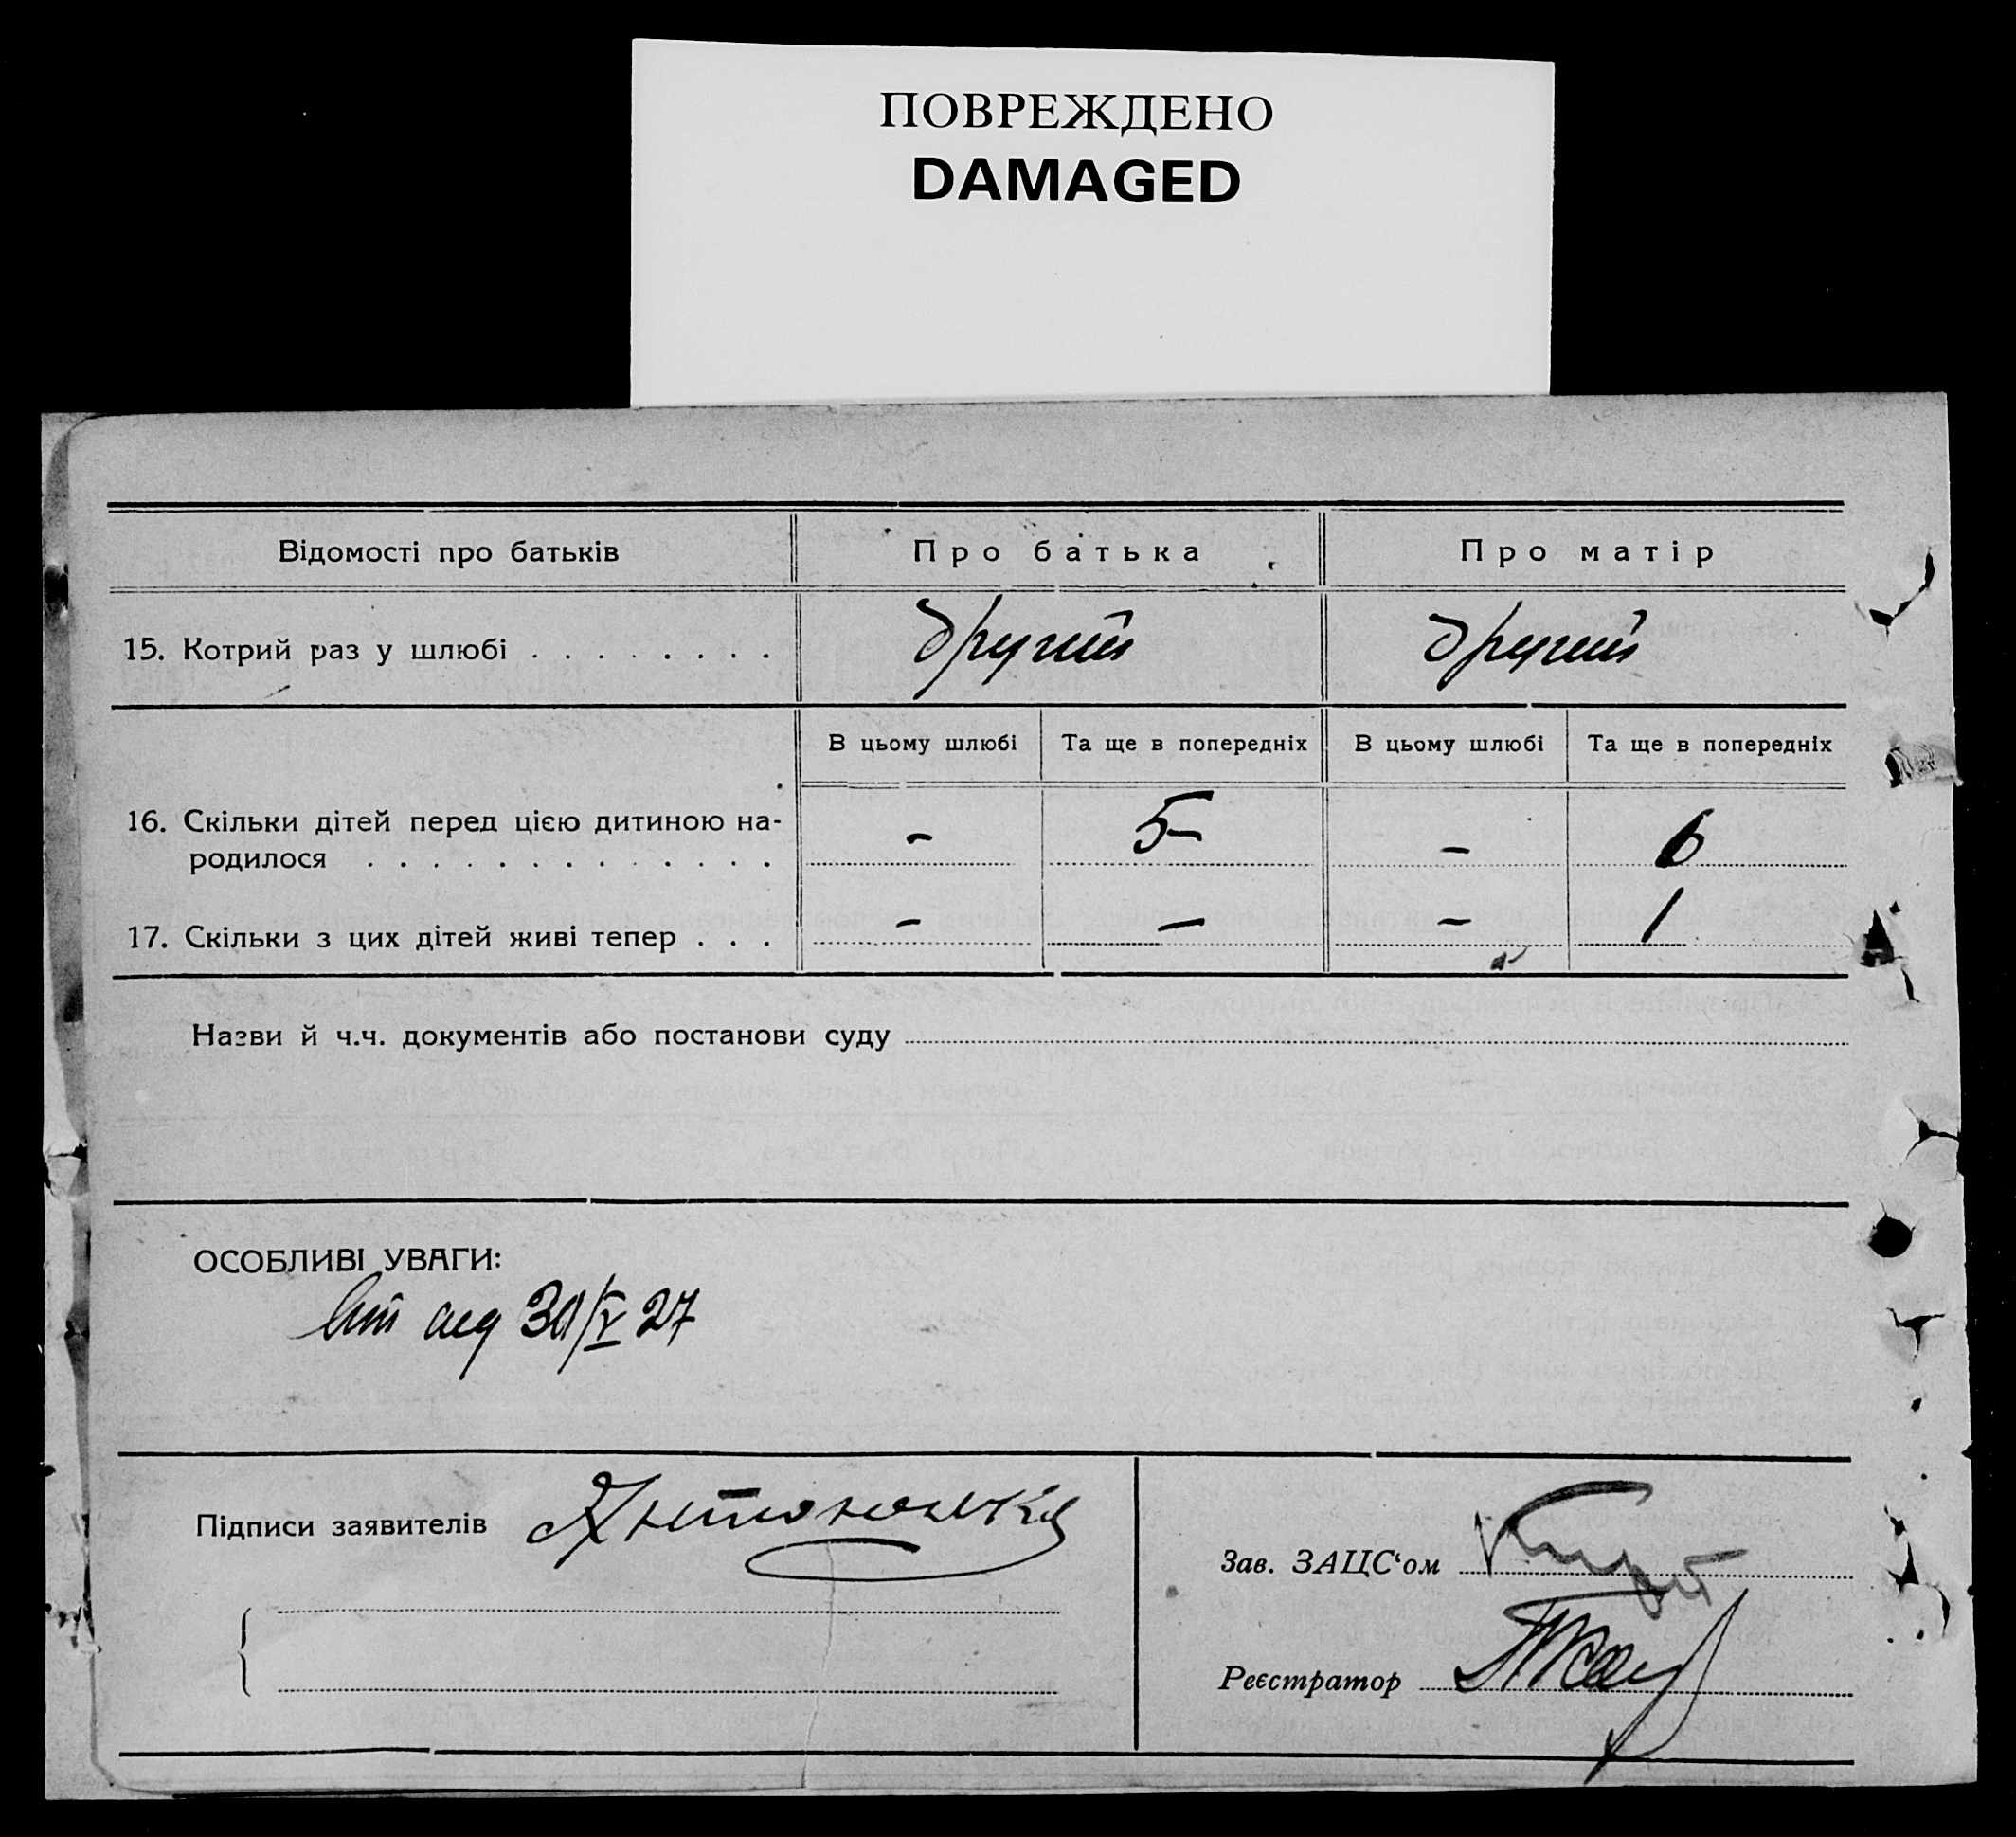 ПОВРЕЖДЕНО
DAMAGED
Відомості про батьків Про батька Про матір
15. Котрий раз у шлюбі . . . . . . . . другий другий
В цьому шлюбі Та ще в попередніх В цьому шлюбі Та ще в попередніх
16. Скільки дітей перед цією дитиною на-
родилося . . . . . . . . . . . . . – 5 – 6
17. Скільки з цих дітей живі тепер . . . – – – 1
Назви й ч.ч. документів або постанови суду
ОСОБЛИВІ УВАГИ:
27
Підписи заявителів
Зав. ЗАЦС‘ом
Реєстратор